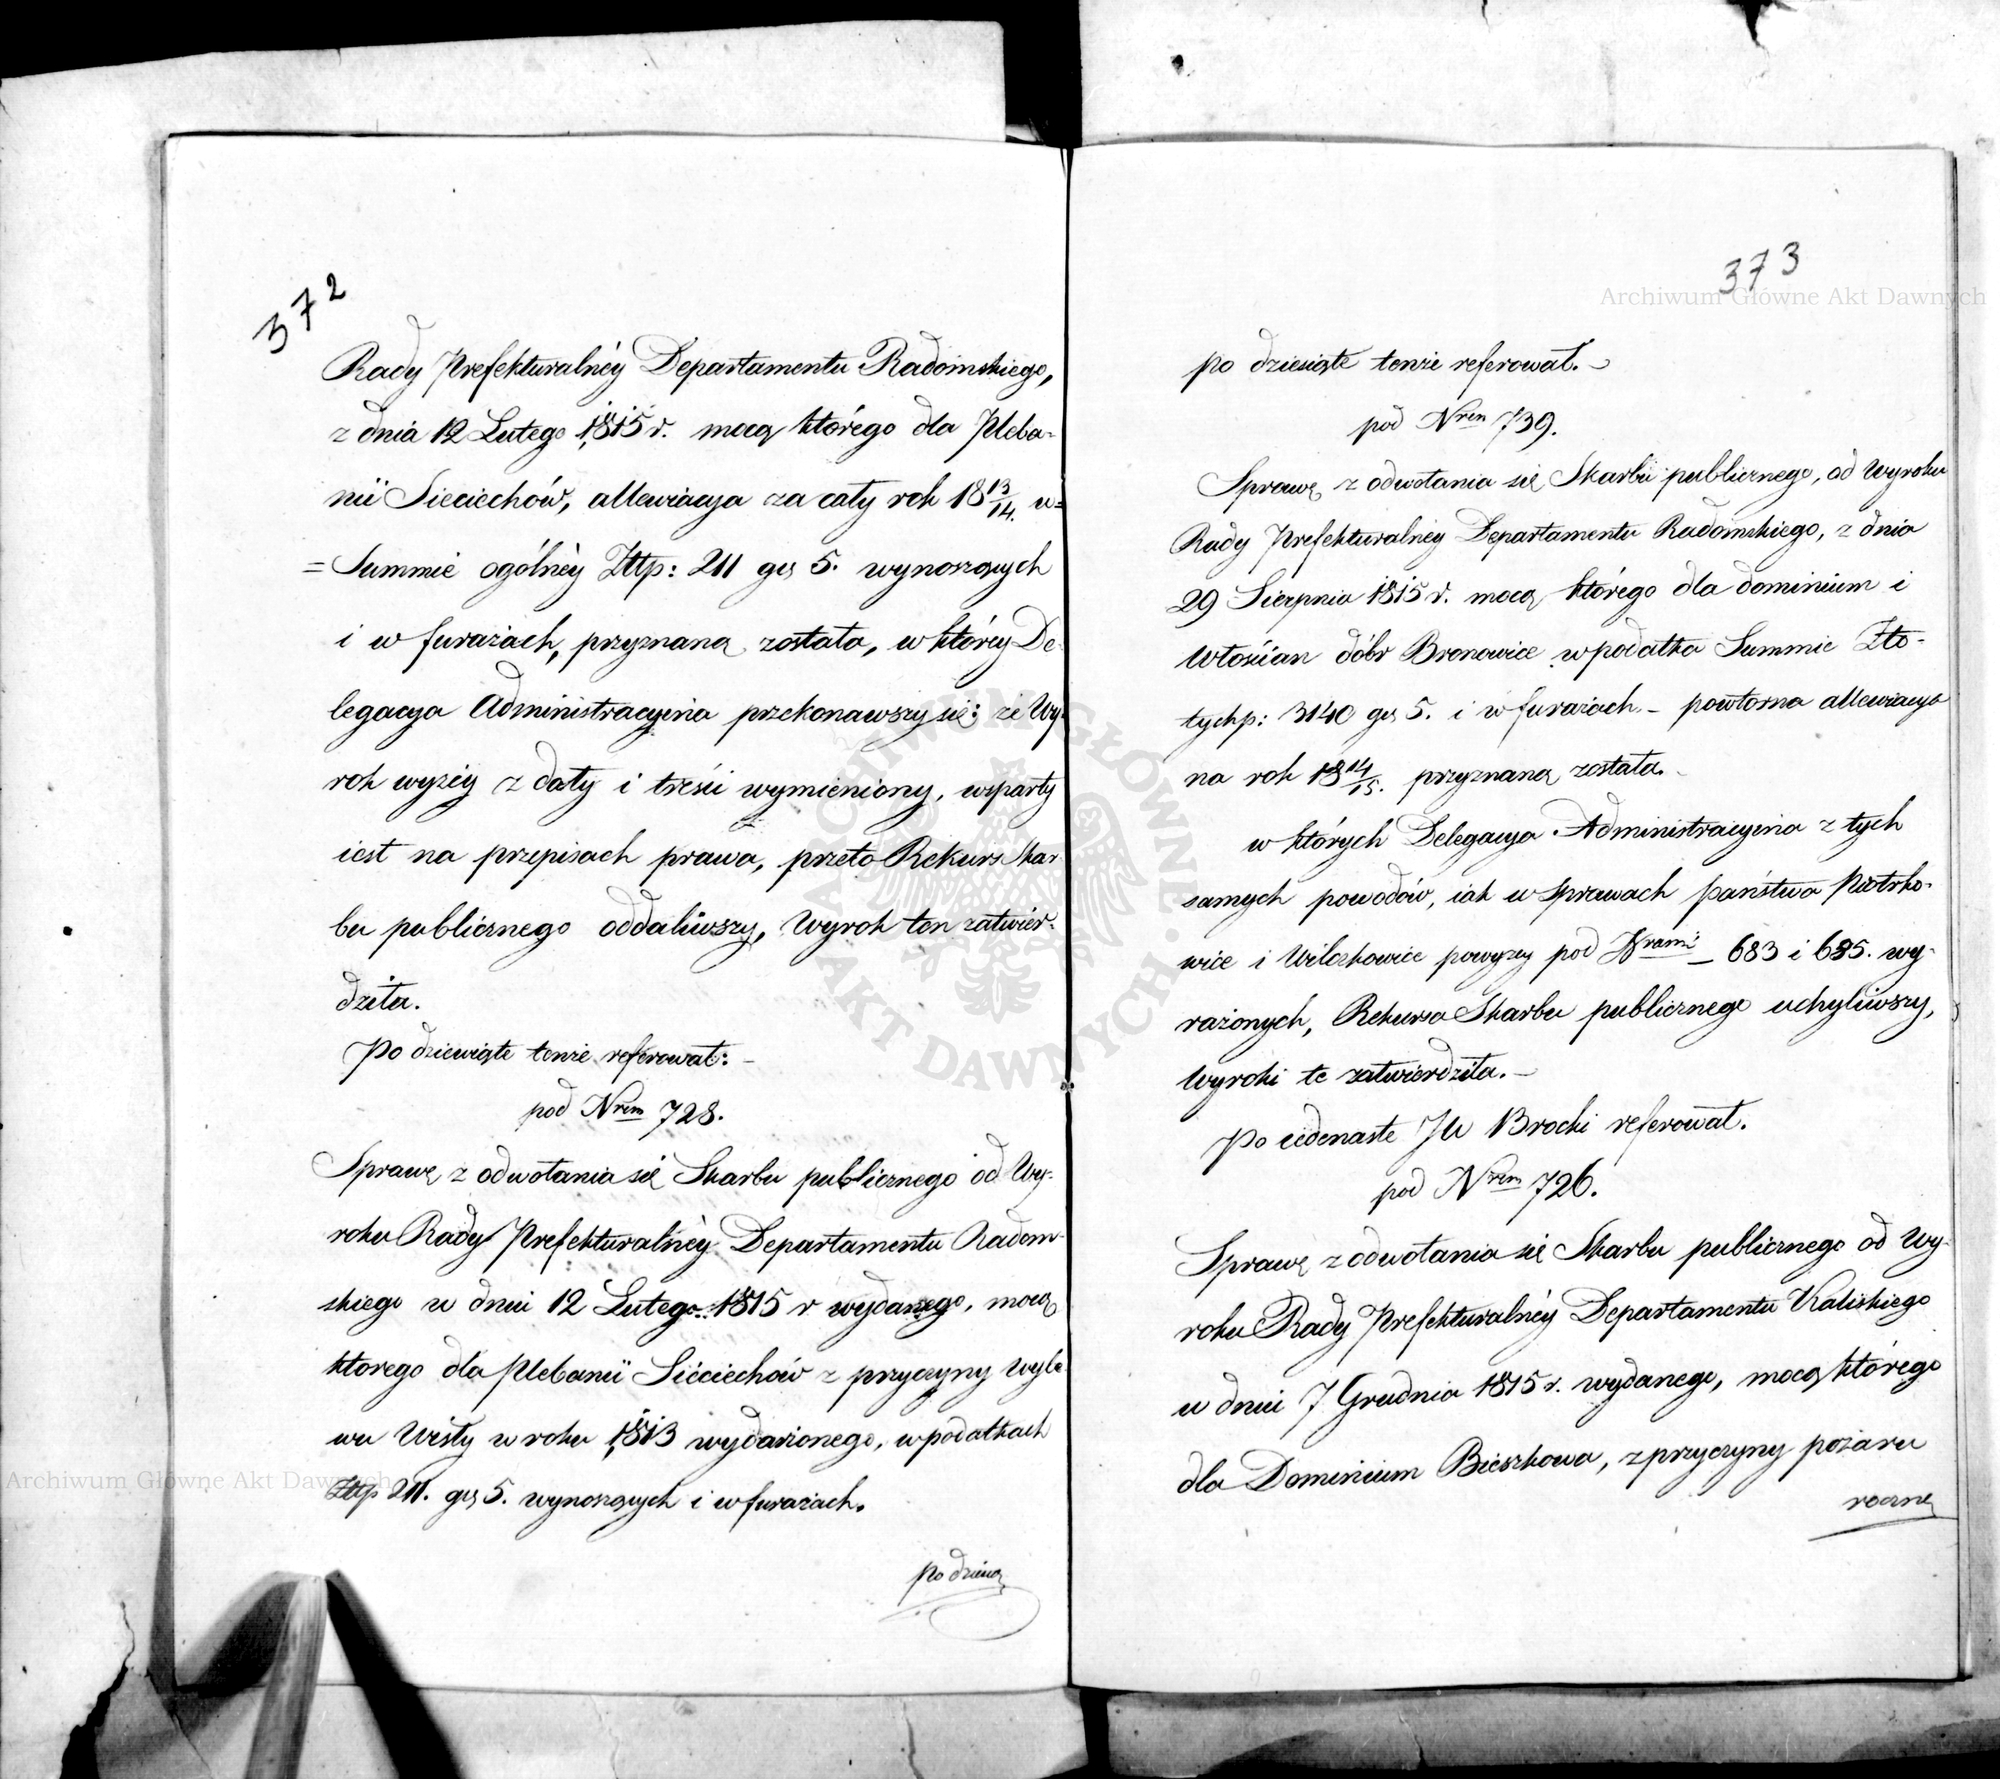 372
Rady Prefekturalnéy Departamentu Radomskiego,
z dnia 12 Lutego 1815 r. mocą którego dla Pleba-
nii Sieciechów, allewiacya za cały rok 18 13/14. w=
= Summie ogólnéy Złłp: 211 gr 5. wynoszących
i w furażach, przyznaną została, w któréy De-
legacya Administracyina przekonawszy się; że Wy-
rok wyżéy z daty i treści wymieniony, wsparty
iest na przepisach prawa, przeto Rekurs Skar-
bu publicznego oddaliwszy, Wyrok ten zatwier-
dziła.
Po dziewiąte tenże referował: –
pod Nrem 728.
Sprawę z odwołania się Skarbu publicznego od Wy-
roku Rady Prefekturalnéy Departamentu Radom-
skiego w dniu 12 Lutego 1815 r wydanego, mocą
ktorego dla Plebanii Siéciechów z przyczyny wyle-
wu Wisły w roku 1813 wydarzonego, w podatkach
Złłp 211. gr 5. wynoszących i w furażach.
Po dziesią
373
po dziesiąte tenże referował. –
pod Nrem 739.
Sprawę z odwołania się Skarbu publicznego, od Wyroku
Rady Prefekturalnéy Departamentu Radomskiego, z dnia
29 Sierpnia 1815 r. mocą którego dla dominium i
Włościan dóbr Bronowice w podatku Summie Zło-
tychp: 3140 gr 5. i w furażach – powtorna allewiacya
na rok 18 14/15. przyznaną została. –
w których Delegacya Administracyina z tych
samych powodów, iak w sprawach państwa Piotrko-
wice i Wilczkowice powyżey pod Nrami – 683 i 685. wy-
rażonych, Rekursa Skarbu publicznego uchyliwszy,
Wyroki te zatwierdziła. –
Po iedenaste JW Brocki referował.
pod Nrem 726.
Sprawę z odwołania się Skarbu publicznego od Wy-
roku Rady Prefekturalnéy Departamentu Kaliskiego
w dniu 7 Grudnia 1815 r. wydanego, mocą którego
dla Dominium Bieszkowa, z przyczyny pożaru
roczną
Archiwum Główne Akt Dawnych
Archiwum Główne Akt Dawnych
ARCHIWUM GŁÓWNE AKT DAWNYCH